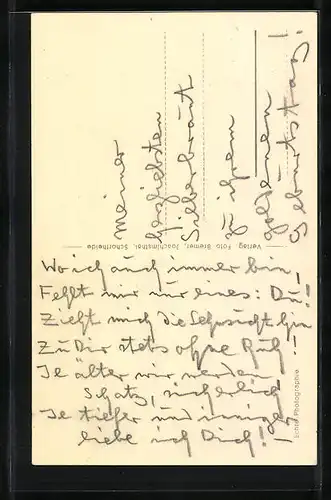 Meiner
herzliebsten
Silberbraut
zu ihrem
goldenen
Geburtstag!
Verlag Foto Bremer, Joachimsthal, Schorfheide
Wo ich auch immer bin,
Fehlt mir nur eines: Du!
Zieht mich die Sehnsucht hin
Zu Dir stets ohne Ruh!
Je älter wir werden
Schatz, sicherlich
Je tiefer und inniger
liebe ich Dich! —
Echte Photographie